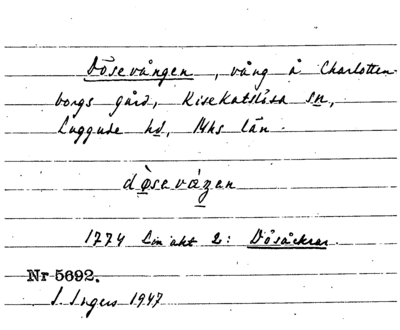 Dösevången, vång å Charlotten-
borgs gård, Risekatslösa sn,
Luggude hd, Mhs län.
dø̀sevåŋen
1774 Lm akt 2: Dösåckrar.
Nr 5692.
I. Ingers 1947